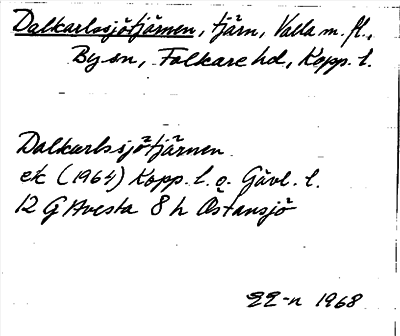 Dalkarlssjötjärnen, tjärn, Valla m. fl.,
By sn, Folkare hd, Kopp. l.
Dalkarlssjötjärnen
ek (1964) Kopp. l. o. Gävl. l.
12 G Avesta 8 h Östansjö
1968